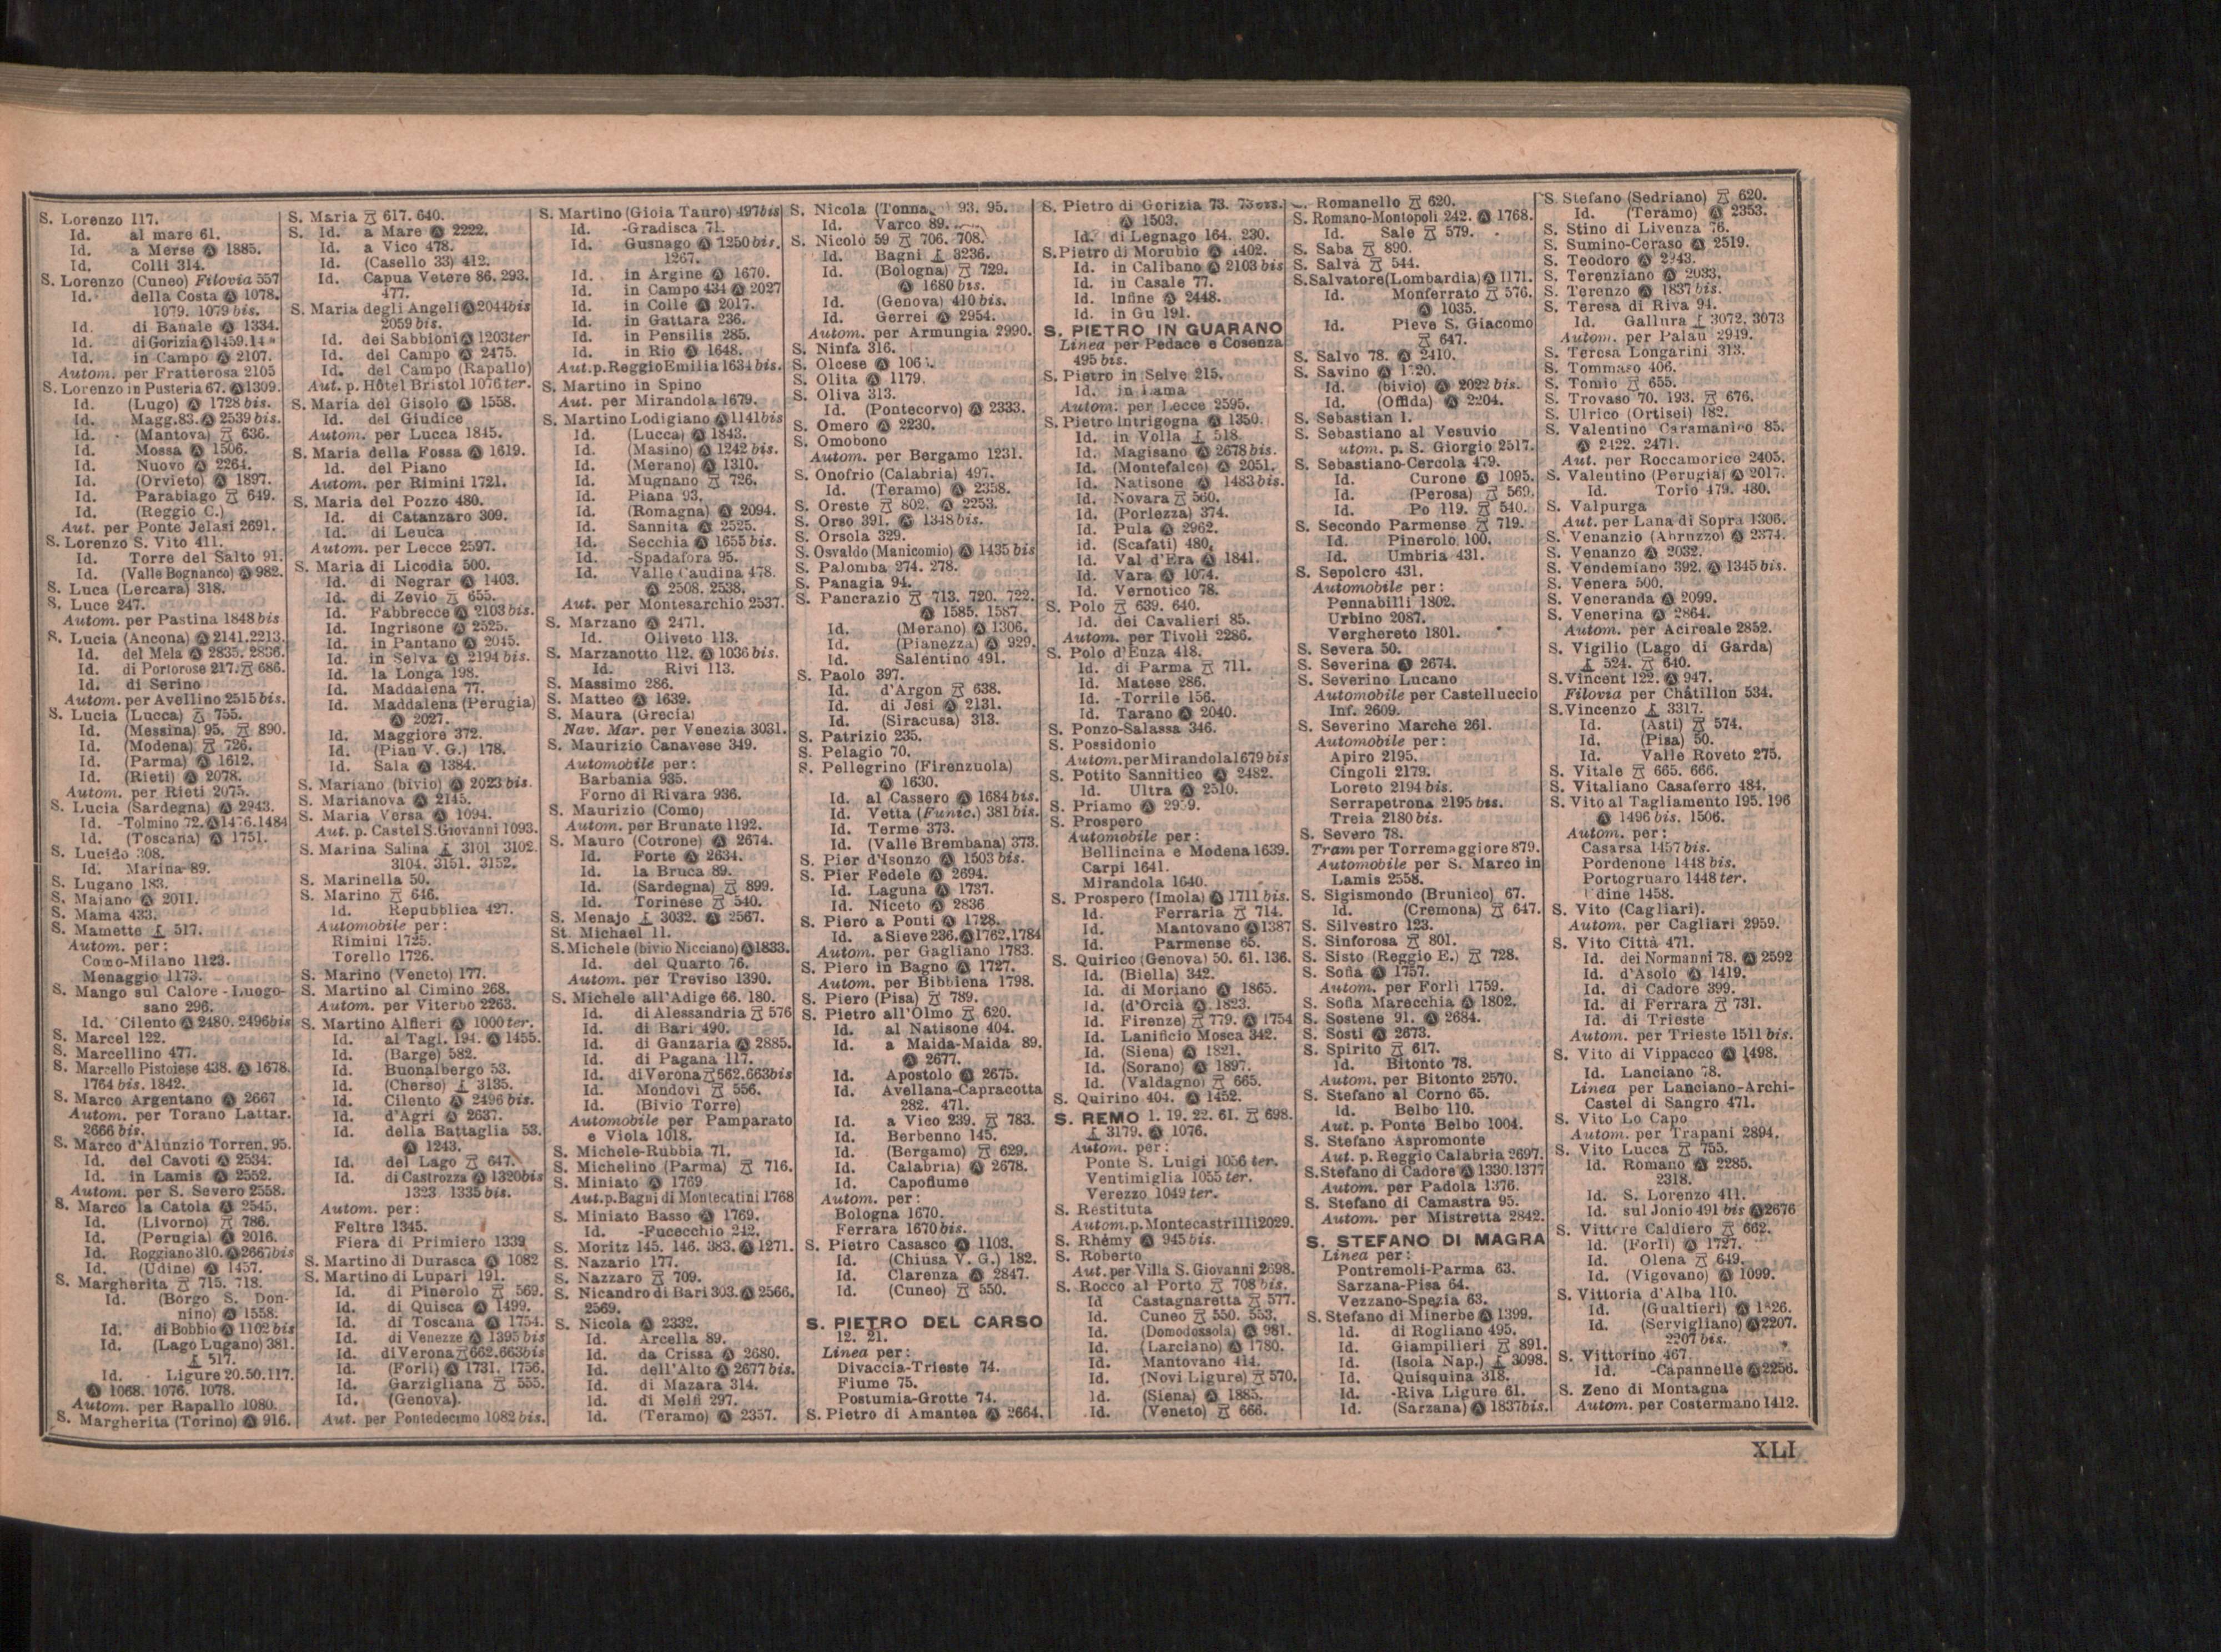 S. Lorenzo 117.
Id. al mare 61.
Id. a Merse Ⓐ 1885.
Id. Colli 314.
S. Lorenzo (Cuneo) Filovia 557
Id. della Costa Ⓐ 1078.
1079. 1079 bis.
Id. di Banale Ⓐ 1334.
Id. di Gorizia Ⓐ 1459.
Id. in Campo Ⓐ 2107.
Autom. per Fratterosa 2105
S. Lorenzo in Pusteria 67. Ⓐ 1309.
Id. (Lugo) Ⓐ 1728 bis.
Id. Magg. 83. Ⓐ 2539 bis.
Id. (Mantova) 636.
Id. Mossa Ⓐ 1506.
Id. Nuovo Ⓐ 2264.
Id. (Orvieto) Ⓐ 1897.
Id. Parabiago 649.
Id. (Reggio C.)
Aut. per Ponte Jelasi 2691.
S. Lorenzo S. Vito 411.
Id. Torre del Salto 91.
Id. (Valle Bognanco) Ⓐ 982.
S. Luca (Lercara) 318.
S. Luce 247.
Autom. per Pastina 1848 bis
S. Lucia (Ancona) Ⓐ 2141. 2213.
Id. del Mela Ⓐ 2835. 2836.
Id. di Portorose 217. 686.
Id. di Serino
Autom. per Avellino 2515 bis.
S. Lucia (Lucca) 755.
Id. (Messina) 95. 890.
Id. (Modena) 726.
Id. (Parma) Ⓐ 1612.
Id. (Rieti) Ⓐ 2078.
Autom. per Rieti 2075.
S. Lucia (Sardegna) Ⓐ 2943.
Id. -Tolmino 72. Ⓐ 1476. 1484
Id. (Toscana) Ⓐ 1751.
S. Lucido 308.
Id. Marina 89.
S. Lugano 183.
S. Maiano Ⓐ 2011.
S. Mama 433.
S. Mamette 517.
Autom. per:
Como-Milano 1123.
Menaggio 1173.
S. Mango sul Calore - Luogo-
sano 296.
Id. Cilento Ⓐ 2480. 2496 bis
S. Marcel 122.
S. Marcellino 477.
S. Marcello Pistoiese 438. Ⓐ 1678.
1764 bis. 1842.
S. Marco Argentano Ⓐ 2667
Autom. per Torano Lattar.
2666 bis.
S. Marco d'Alunzio Torren. 95.
Id. del Cavoti Ⓐ 2534.
Id. in Lamis Ⓐ 2552.
Autom. per S. Severo 2558.
S. Marco la Catola Ⓐ 2545.
Id. (Livorno) 786.
Id. (Perugia) Ⓐ 2016.
Id. Roggiano 310. Ⓐ 2667 bis
Id. (Udine) Ⓐ 1457.
S. Margherita 715. 718.
Id. (Borgo S. Don-
nino) Ⓐ 1558.
Id. di Bobbio Ⓐ 1102 bis
Id. (Lago Lugano) 381.
517.
Id. - Ligure 20. 50. 117.
Ⓐ 1068. 1076. 1078.
Autom. per Rapallo 1080.
S. Margherita (Torino) Ⓐ 916.
S. Maria 617. 640.
S. Id. a Mare Ⓐ 2222.
Id. a Vico 478.
Id. (Casello 33) 412.
Id. Capua Vetere 86. 293.
477.
S. Maria degli Angeli Ⓐ 2044 bis
2059 bis.
Id. dei Sabbioni Ⓐ 1203 ter
Id. del Campo Ⓐ 2475.
Id. del Campo (Rapallo)
Aut. p. Hôtel Bristol 1076 ter.
S. Maria del Gisolo Ⓐ 1558.
Id. del Giudice
Autom. per Lucca 1845.
S. Maria della Fossa Ⓐ 1619.
Id. del Piano
Autom. per Rimini 1721.
S. Maria del Pozzo 480.
Id. di Catanzaro 309.
Id. di Leuca
Autom. per Lecce 2597.
S. Maria di Licodia 500.
Id. di Negrar Ⓐ 1403.
Id. di Zevio 655.
Id. Fabbrecce Ⓐ 2103 bis.
Id. Ingrisone Ⓐ 2525.
Id. in Pantano Ⓐ 2045.
Id. in Selva Ⓐ 2194 bis.
Id. la Longa 198.
Id. Maddalena 77.
Id. Maddalena (Perugia)
Ⓐ 2027.
Id. Maggiore 372.
Id. (Pian V. G.) 178.
Id. Sala Ⓐ 1384.
S. Mariano (bivio) Ⓐ 2023 bis.
S. Marianova Ⓐ 2145.
S. Maria Versa Ⓐ 1094.
Aut. p. Castel S. Giovanni 1093.
S. Marina Salina 3101. 3102.
3104. 3151. 3152.
S. Marinella 50.
S. Marino 646.
Id. Repubblica 427.
Automobile per:
Rimini 1725.
Torello 1726.
S. Marino (Veneto) 177.
S. Martino al Cimino 268.
Autom. per Viterbo 2263.
S. Martino Alfieri Ⓐ 1000 ter.
Id. al Tagl. 194. Ⓐ 1455.
Id. (Barge) 582.
Id. Buonalbergo 53.
Id. (Cherso) 3135.
Id. Cilento Ⓐ 2496 bis.
Id. d'Agri Ⓐ 2637.
Id. della Battaglia 53.
Ⓐ 1243.
Id. del Lago 647.
Id. di Castrozza Ⓐ 1320 bis
1323 1335 bis.
Autom. per:
Feltre 1345.
Fiera di Primiero 1339
S. Martino di Durasca Ⓐ 1082
S. Martino di Lupari 191.
Id. di Pinerolo 569.
Id. di Quisca Ⓐ 1499.
Id. di Toscana Ⓐ 1754.
Id. di Venezze Ⓐ 1395 bis
Id. di Verona 662. 663 bis
Id. (Forlì) Ⓐ 1731. 1756.
Id. Garzigliana 555.
Id. (Genova).
Aut. per Pontedecimo 1082 bis.
S. Martino (Gioia Tauro) 497 bis
Id. -Gradisca 71.
Id. Gusnago Ⓐ 1250 bis.
1267.
Id. in Argine Ⓐ 1670.
Id. in Campo 434 Ⓐ 2027
Id. in Colle Ⓐ 2017.
Id. in Gattara 236.
Id. in Pensilis 285.
Id. in Rio Ⓐ 1648.
Aut. p. Reggio Emilia 1634 bis.
S. Martino in Spino
Aut. per Mirandola 1679.
S. Martino Lodigiano Ⓐ 1141 bis
Id. (Lucca) Ⓐ 1843.
Id. (Masino) Ⓐ 1242 bis.
Id. (Merano) Ⓐ 1310.
Id. Mugnano 726.
Id. Piana 93.
Id. (Romagna) Ⓐ 2094.
Id. Sannita Ⓐ 2525.
Id. Secchia Ⓐ 1655 bis.
Id. -Spadafora 95.
Id. Valle Caudina 478.
Ⓐ 2508. 2538.
Aut. per Montesarchio 2537.
S. Marzano Ⓐ 2471.
Id. Oliveto 113.
S. Marzanotto 112. Ⓐ 1036 bis.
Id. Rivi 113.
S. Massimo 286.
S. Matteo Ⓐ 1639.
S. Maura (Grecia)
Nav. Mar. per Venezia 3031.
S. Maurizio Canavese 349.
Automobile per:
Barbania 935.
Forno di Rivara 936.
S. Maurizio (Como)
Autom. per Brunate 1192.
S. Mauro (Cotrone) Ⓐ 2674.
Id. Forte Ⓐ 2634.
Id. la Bruca 89.
Id. (Sardegna) 899.
Id. Torinese 540.
S. Menajo 3032. Ⓐ 2567.
St. Michael 11.
S. Michele (bivio Nicciano) Ⓐ 1833.
Id. del Quarto 76.
Autom. per Treviso 1390.
S. Michele all'Adige 66. 180.
Id. di Alessandria 576
Id. di Bari 490.
Id. di Ganzaria Ⓐ 2885.
Id. di Pagana 117.
Id. di Verona 662. 663 bis
Id. Mondovì 556.
Id. (Bivio Torre)
Automobile per Pamparato
e Viola 1018.
S. Michele-Rubbia 71.
S. Michelino (Parma) 716.
S. Miniato Ⓐ 1769
Aut. p. Bagni di Montecatini 1768
S. Miniato Basso Ⓐ 1769.
Id. -Fucecchio 242.
S. Moritz 145. 146. 383. Ⓐ 1271.
S. Nazario 177.
S. Nazzaro 709.
S. Nicandro di Bari 303. Ⓐ 2566.
2569.
S. Nicola Ⓐ 2332.
Id. Arcella 89.
Id. da Crissa Ⓐ 2680.
Id. dell'Alto Ⓐ 2677 bis.
Id. di Mazara 314.
Id. di Melfi 297.
Id. (Teramo) Ⓐ 2357.
S. Nicola (Tonna 93. 95.
Id. Varco 89.
S. Nicolò 59 706. 708.
Id. Bagni 3236.
Id. (Bologna) 729.
Ⓐ 1680 bis.
Id. (Genova) 410 bis.
Id. Gerrei Ⓐ 2954.
Autom. per Armungia 2990.
S. Ninfa 316.
S. Olcese Ⓐ
S. Olita Ⓐ 1179.
S. Oliva 313.
Id. (Pontecorvo) Ⓐ 2333.
S. Omero Ⓐ 2230.
S. Omobono
Autom. per Bergamo 1231.
S. Onofrio (Calabria) 497.
Id. (Teramo) Ⓐ 2358.
S. Oreste 802. Ⓐ 2253.
S. Orso 391. Ⓐ 1348 bis.
S. Orsola 329.
S. Osvaldo (Manicomio) Ⓐ 1435 bis
S. Palomba 274. 278.
S. Panagia 94.
S. Pancrazio 713. 720. 722.
Ⓐ 1585. 1587
Id. (Merano) Ⓐ 1306.
Id. (Pianezza) Ⓐ 929.
Id. Salentino 491.
S. Paolo 397.
Id. d'Argon 638.
Id. di Jesi Ⓐ 2131.
Id. (Siracusa) 313.
S. Patrizio 235.
S. Pelagio 70.
S. Pellegrino (Firenzuola)
Ⓐ 1630.
Id. al Cassero Ⓐ 1684 bis.
Id. Vetta (Funic.) 381 bis.
Id. Terme 373.
Id. (Valle Brembana) 373.
S. Pier d'Isonzo Ⓐ 1503 bis.
S. Pier Fedele Ⓐ 2694.
Id. Laguna Ⓐ 1737.
Id. Niceto Ⓐ 2836
S. Piero a Ponti Ⓐ 1728.
Id. a Sieve 236. Ⓐ 1762. 1784
Autom. per Gagliano 1783.
S. Piero in Bagno Ⓐ 1727.
Autom. per Bibbiena 1798.
S. Piero (Pisa) 789.
S. Pietro all'Olmo 620.
Id. al Natisone 404.
Id. a Maida-Maida 89.
Ⓐ 2677.
Id. Apostolo Ⓐ 2675.
Id. Avellana-Capracotta
282. 471.
Id. a Vico 239. 783.
Id. Berbenno 145.
Id. (Bergamo) 629.
Id. Calabria) Ⓐ 2678.
Id. Capofiume
Autom. per:
Bologna 1670.
Ferrara 1670 bis.
S. Pietro Casasco Ⓐ 1103.
Id. (Chiusa V. G.) 182.
Id. Clarenza Ⓐ 2847.
Id. (Cuneo) 550.
S. PIETRO DEL CARSO
12. 21.
Linea per:
Divaccia-Trieste 74.
Fiume 75.
Postumia-Grotte 74.
S. Pietro di Amantea Ⓐ 2664.
S. Pietro di Gorizia 73. 73 bis.
Ⓐ 1503.
Id. di Legnago 164. 230.
S. Pietro di Morubio Ⓐ 1402.
Id. in Calibano Ⓐ 2103 bis
Id. in Casale 77.
Id. Infine Ⓐ 2448.
Id. in Gu 191.
S. PIETRO IN GUARANO
Linea per Pedace e Cosenza
495 bis.
S. Pietro in Selve 215.
Id. in Lama
Autom. per Lecce 2595.
S. Pietro Intrigogna Ⓐ 1350.
Id. in Volla 518.
Id. Magisano Ⓐ 2678 bis.
Id. (Montefalco) Ⓐ 2051.
Id. Natisone Ⓐ 1483 bis.
Id. Novara 560.
Id. (Porlezza) 374.
Id. Pula Ⓐ 2962.
id. (Scafati) 480.
Id. Val d'Era Ⓐ 1841.
Id. Vara Ⓐ 1074.
Id. Vernotico 78.
S. Polo 639. 640.
Id. dei Cavalieri 85.
Autom. per Tivoli 2286.
S. Polo d'Enza 418.
Id. di Parma 711.
Id. Matese 286.
Id. -Torrile 156.
Id. Tarano Ⓐ 2040.
S. Ponzo-Salassa 346.
S. Possidonio
Autom. per Mirandola 1679 bis
S. Potito Sannitico Ⓐ 2482.
Id. Ultra Ⓐ 2510.
S. Priamo Ⓐ
S. Prospero
Automobile per:
Bellincina e Modena 1639.
Carpi 1641.
Mirandola 1640.
S. Prospero (Imola) Ⓐ 1711 bis.
Id. Ferraria 714.
Id. Mantovano Ⓐ 1387
Id. Parmense 65.
S. Quirico (Genova) 50. 61. 136.
Id. (Biella) 342.
Id. di Moriano Ⓐ 1865.
Id. (d'Orcia Ⓐ 1823.
Id. Firenze) 779. Ⓐ 1754
Id. Lanificio Mosca 342.
Id. (Siena) Ⓐ 1821.
Id. (Sorano) Ⓐ 1897.
Id. (Valdagno) 665.
S. Quirino 404. Ⓐ 1452.
S. REMO 1. 19. 22. 61. 698.
3179. Ⓐ 1076.
Autom. per:
Ponte S. Luigi 1056 ter.
Ventimiglia 1055 ter.
Verezzo 1049 ter.
S. Restituta
Autom. p. Montecastrilli 2029.
S. Rhémy Ⓐ 945 bis.
S. Roberto
Aut. per Villa S. Giovanni 2698.
S. Rocco al Porto 708 bis.
Id Castagnaretta 577.
Id. Cuneo 550. 553.
Id. (Domodossola) Ⓐ 981.
Id. (Larciano) Ⓐ 1780.
Id. Mantovano 414.
Id. (Novi Ligure) 570.
Id. (Siena) Ⓐ 1885.
Id. (Veneto) 666.
Romanello 620.
S. Romano-Montopoli 242. Ⓐ 1768.
Id. Sale 579.
S. Saba 890.
S. Salvà 544.
S. Salvatore (Lombardia) Ⓐ 1171.
Id. Monferrato 576.
Ⓐ 1035.
Id. Pieve S. Giacomo
647.
S. Salvo 78. Ⓐ 2410.
S. Savino Ⓐ
Id. (bivio) Ⓐ 2022 bis.
Id. (Offida) Ⓐ 2204.
S. Sebastian 1.
S. Sebastiano al Vesuvio
utom. p. S. Giorgio 2517.
S. Sebastiano-Cercola 479.
Id. Curone Ⓐ 1095.
Id. (Perosa) 569.
Id. Po 119. 540.
S. Secondo Parmense 719.
Id. Pinerolo 100.
Id. Umbria 431.
S. Sepolcro 431.
Automobile per:
Pennabilli 1802.
Urbino 2087.
Verghereto 1801.
S. Severa 50.
S. Severina Ⓐ 2674.
S. Severino Lucano
Automobile per Castelluccio
Inf. 2609.
S. Severino Marche 261.
Automobile per:
Apiro 2195.
Cingoli 2179.
Loreto 2194 bis.
Serrapetrona 2195 bis.
Treia 2180 bis.
S. Severo 78.
Tram per Torremaggiore 879.
Automobile per S. Marco in
Lamis 2558.
S. Sigismondo (Brunico) 67.
Id. (Cremona) 647.
S. Silvestro 123.
S. Sinforosa 801.
S. Sisto (Reggio E.) 728.
S. Sofia Ⓐ 1757.
Autom. per Forlì 1759.
S. Sofia Marecchia Ⓐ 1802.
S. Sostene 91. Ⓐ 2684.
S. Sosti Ⓐ 2673.
S. Spirito 617.
Id. Bitonto 78.
Autom. per Bitonto 2570.
S. Stefano al Corno 65.
Id. Belbo 110.
Aut. p. Ponte Belbo 1004.
S. Stefano Aspromonte
Aut. p. Reggio Calabria 2697.
S. Stefano di Cadore Ⓐ 1330. 1377
Autom. per Padola 1376.
S. Stefano di Camastra 95.
Autom. per Mistretta 2842.
S. STEFANO DI MAGRA
Linea per:
Pontremoli-Parma 63.
Sarzana-Pisa 64.
Vezzano-Spezia 63.
S. Stefano di Minerbe Ⓐ 1399.
Id. di Rogliano 495.
Id. Giampilieri 891.
Id. (Isola Nap.) 3098.
Id. Quisquina 318.
Id. -Riva Ligure 61.
Id. (Sarzana) Ⓐ 1837 bis.
S. Stefano (Sedriano) 620.
Id. (Teramo) Ⓐ 2353.
S. Stino di Livenza 76.
S. Sumino-Ceraso Ⓐ 2519.
S. Teodoro Ⓐ 2943.
S. Terenziano Ⓐ 2033.
S. Terenzo Ⓐ 1837 bis.
S. Teresa di Riva 94.
Id. Gallura 3072. 3073
Autom. per Palau 2949.
S. Teresa Longarini 313.
S. Tommaso 406.
S. Tomio 655.
S. Trovaso 70. 193. 676.
S. Ulrico (Ortisei) 182.
S. Valentino Caramanico 85.
Ⓐ 2422. 2471.
Aut. per Roccamorice 2405.
S. Valentino (Perugia) Ⓐ 2017.
Id. Torio 479. 480.
S. Valpurga
Aut. per Lana di Sopra 1306.
S. Venanzio (Abruzzo) Ⓐ 2374.
S. Venanzo Ⓐ 2032.
S. Vendemiano 392. Ⓐ 1345 bis.
S. Venera 500.
S. Veneranda Ⓐ 2099.
S. Venerina Ⓐ 2864.
Autom. per Acireale 2852.
S. Vigilio (Lago di Garda)
524. 640.
S. Vincent 122. Ⓐ 947.
Filovia per Châtillon 534.
S. Vincenzo 3317.
Id. (Asti) 574.
Id. (Pisa) 50.
Id. Valle Roveto 275.
S. Vitale 665. 666.
S. Vitaliano Casaferro 484.
S. Vito al Tagliamento 195. 196
Ⓐ 1496 bis. 1506.
Autom. per:
Casarsa 1457 bis.
Pordenone 1448 bis.
Portogruaro 1448 ter.
dine 1458.
S. Vito (Cagliari).
Autom. per Cagliari 2959.
S. Vito Città 471.
Id. dei Normanni 78. Ⓐ 2592
Id. d'Asolo Ⓐ 1419.
Id. di Cadore 399.
Id. di Ferrara 731.
Id. di Trieste
Autom. per Trieste 1511 bis.
S. Vito di Vippacco Ⓐ 1498.
Id. Lanciano 78.
Linea per Lanciano-Archi-
Castel di Sangro 471.
S. Vito Lo Capo
Autom. per Trapani 2894.
S. Vito Lucca 755.
Id. Romano Ⓐ 2285.
2318.
Id. S. Lorenzo 411.
Id. sul Jonio 491 bis Ⓐ 2676
S. Vittore Caldiero 662.
Id. (Forlì) Ⓐ 1727.
Id. Olena 649.
Id. (Vigevano) Ⓐ 1099.
S. Vittoria d'Alba 110.
Id. (Gualtieri) Ⓐ
Id. (Servigliano) Ⓐ 2207.
2207 bis.
S. Vittorino 467.
Id. -Capannelle Ⓐ 2256.
S. Zeno di Montagna
Autom. per Costermano 1412.
XLI